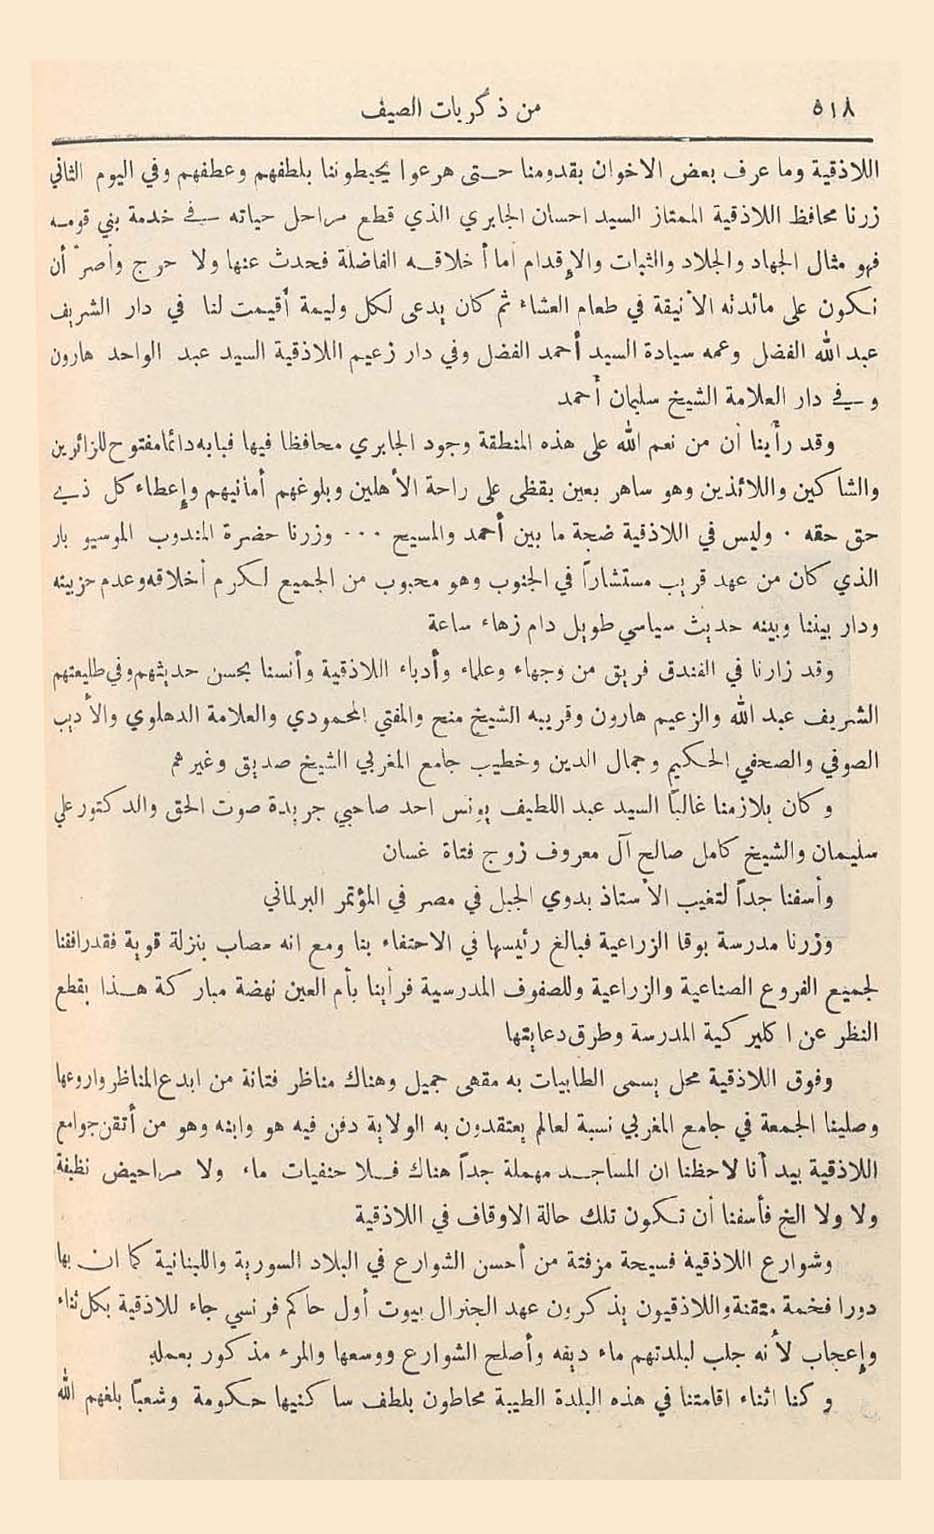 ٥١٨
من ذكريات الصيف
اللاذقية وما عرف بعض الاخوان بقدومنا حتى هرعوا يحيطوننا بلطفهم وعطفهم وفي اليوم الثاني
زرنا محافظ اللاذقية الممتاز السيد احسان الجابري الذي قطع مراحل حياته في خدمة بني قومه
فهو مثال الجهاد والجلاد والثبات والإقدام أما أخلاقه الفاضلة فحدث عنها ولا حرج وأصرّ أن
نكون على مائدته الأنيقة في طعام العشاء ثم كان يدعى لكل وليمة أقيمت لنا في دار الشريف
عبد الله الفضل وعمه سيادة السيد أحمد الفضل وفي دار زعيم اللاذقية السيد عبد الواحد هارون
وفي دار العلامة الشيخ سليمان أحمد
وقد رأينا أن من نعم الله على هذه المنطقة وجود الجابري محافظا فيها فبابه دائما مفتوح للزائرين
والشاكين واللائذين وهو ساهر بعين يقظى على راحة الأهلين وبلوغهم أمانيهم وإعطاء كل ذي
حق حقه . وليس في اللاذقية ضجة ما بين أحمد والمسيح ... وزرنا حضرة المندوب الموسيو بار
الذي كان من عهد قريب مستشاراً في الجنوب وهو محبوب من الجميع لكرم أخلاقه وعدم حزبيته
ودار بيننا وبينه حديث سياسي طويل دام زهاء ساعة
وقد زارنا في الفندق فريق من وجهاء وعلماء وأدباء اللاذقية وأنسنا بحسن حديثهم وفي طليعتهم
الشريف عبد الله والزعيم هارون وقريبه الشيخ منح والمفتي المحمودي والعلامة الدهلوي والأديب
الصوفي والصحفي الحكيم وجمال الدين وخطيب جامع المغربي الشيخ صديق وغيرهم
وكان يلازمنا غالباً السيد عبد اللطيف يونس احد صاحبي جريدة صوت الحق والدكتور علي
سليمان والشيخ كامل صالح آل معروف زوج فتاة غسان
وأسفنا جداً لتغيب الأستاذ بدوي الجبل في مصر في المؤتمر البرلماني
وزرنا مدرسة بوقا الزراعية فبالغ رئيسها في الاحتفاء بنا ومع انه مصاب بنزلة قوية فقد رافقنا
لجميع الفروع الصناعية والزراعية وللصفوف المدرسية فرأينا بأم العين نهضة مباركة هذا بقطع
النظر عن اكليركية المدرسة وطرق دعايتها
وفوق اللاذقية محل يسمى الطابيات به مقهى جميل وهناك مناظر فتانة من ابدع المناظر واروعها
وصلينا الجمعة في جامع المغربي نسبة لعالم يعتقدون به الولاية دفن فيه هو وابنه وهو من أتقن جوامع
اللاذقية بيد أنا لاحظنا ان المساجد مهملة جداً هناك فلا حنفيات ماء ولا مراحيض نظيفة
ولا ولا الخ فأسفنا أن تكون تلك حالة الاوقاف في اللاذقية
وشوارع اللاذقية فسيحة مزفتة من أحسن الشوارع في البلاد السورية واللبنانية كما ان بها
دورا فخمة متقنة واللاذقيون يذكرون عهد الجنرال بيوت أول حاكم فرنسي جاء للاذقية بكل ثناء
وإعجاب لأنه جلب لبلدتهم ماء ديفه وأصلح الشوارع ووسعها والمرء مذكور بعمله
وكنا اثناء اقامتنا في هذه البلدة الطيبة محاطون بلطف ساكنيها حكومة وشعباً بلغهم الله